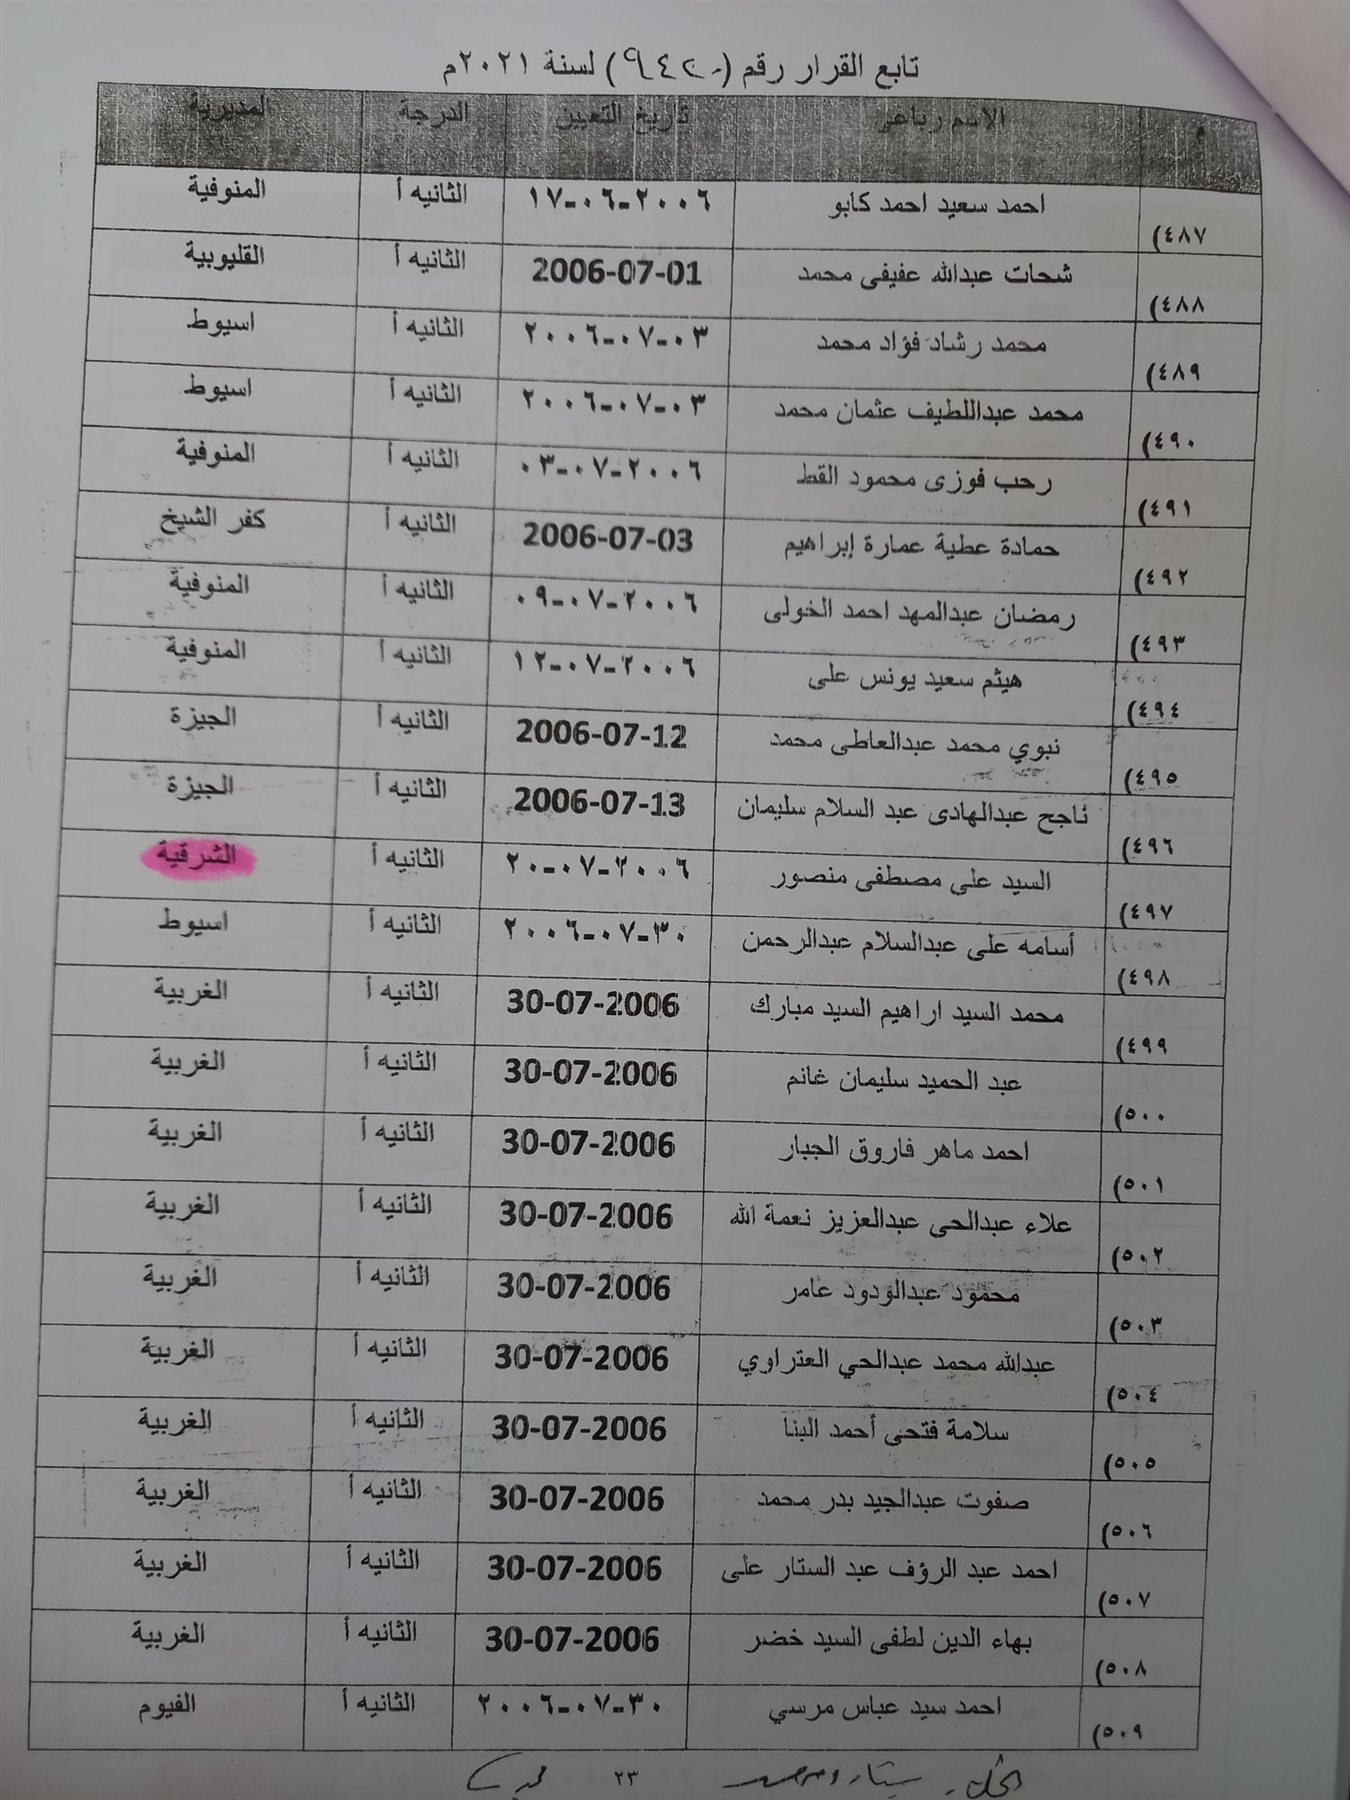 تابع القرار رقم (٩٤٢٠) لسنة ٢٠٢١م
م الاسم رباعى تاريخ التعيين الدرجة المديرية
٤٨٧) احمد سعيد احمد كابو ٢٠٠٦-٠٦-١٧ الثانيه أ المنوفية
٤٨٨) شحات عبدالله عفيفى محمد 2006-07-01 الثانيه أ القليوبية
٤٨٩) محمد رشاد فؤاد محمد ٠٣-٠٧-٢٠٠٦ الثانيه أ اسيوط
٤٩٠) محمد عبداللطيف عثمان محمد ٠٣-٠٧-٢٠٠٦ الثانيه أ اسيوط
٤٩١) رحب فوزى محمود القط ٢٠٠٦-٠٧-٠٣ الثانيه أ المنوفية
٤٩٢) حمادة عطية عمارة إبراهيم 2006-07-03 الثانيه أ كفر الشيخ
٤٩٣) رمضان عبدالمهد احمد الخولى ٢٠٠٦-٠٧-٠٩ الثانيه أ المنوفية
٤٩٤) هيثم سعيد يونس على ٢٠٠٦-٠٧-١٢ الثانيه أ المنوفية
٤٩٥) نبوي محمد عبدالعاطى محمد 2006-07-12 الثانيه أ الجيزة
٤٩٦) ناجح عبدالهادى عبد السلام سليمان 2006-07-13 الثانيه أ الجيزة
٤٩٧) السيد على مصطفى منصور ٢٠٠٦-٠٧-٢٠ الثانيه أ الشرقية
٤٩٨) أسامه على عبدالسلام عبدالرحمن ٣٠-٠٧-٢٠٠٦ الثانيه أ اسيوط
٤٩٩) محمد السيد اراهيم السيد مبارك 30-07-2006 الثانيه أ الغربية
٥٠٠) عبد الحميد سليمان غانم 30-07-2006 الثانيه أ الغربية
٥٠١) احمد ماهر فاروق الجبار 30-07-2006 الثانيه أ الغربية
٥٠٢) علاء عبدالحى عبدالعزيز نعمة الله 30-07-2006 الثانيه أ الغربية
٥٠٣) محمود عبدالودود عامر 30-07-2006 الثانيه أ الغربية
٥٠٤) عبدالله محمد عبدالحي العتراوي 30-07-2006 الثانيه أ الغربية
٥٠٥) سلامة فتحى أحمد البنا 30-07-2006 الثانيه أ الغربية
٥٠٦) صفوت عبدالجيد بدر محمد 30-07-2006 الثانيه أ الغربية
٥٠٧) احمد عبد الرؤف عبد الستار على 30-07-2006 الثانيه أ الغربية
٥٠٨) بهاء الدين لطفى السيد خضر 30-07-2006 الثانيه أ الغربية
٥٠٩) احمد سيد عباس مرسي ٣٠-٠٧-٢٠٠٦ الثانيه أ الفيوم
٢٣